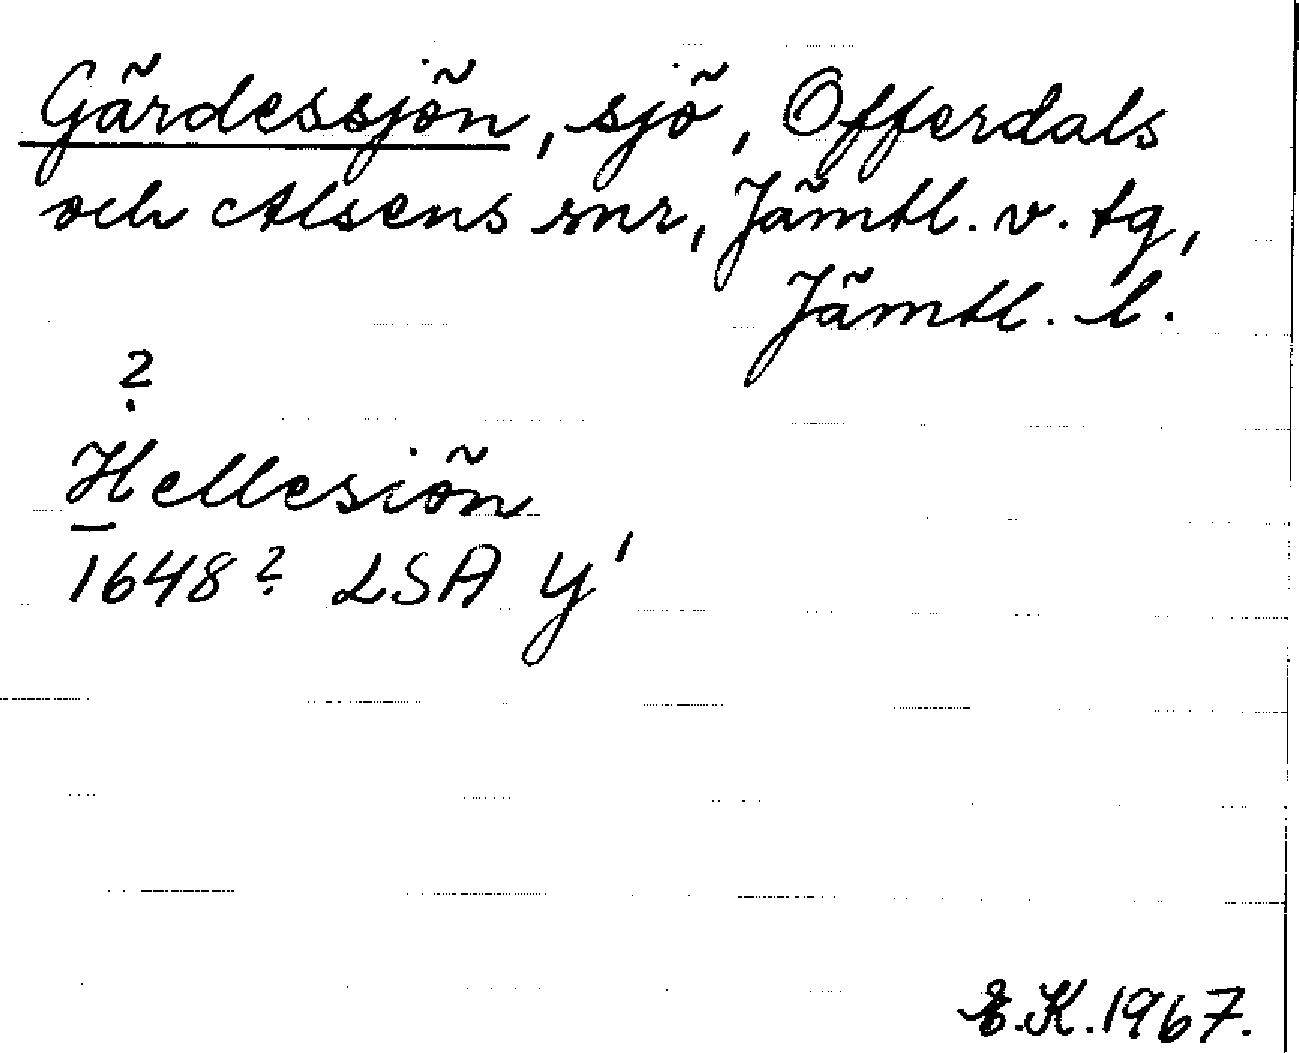 Gärdessjön, sjö, Offerdals
och Alsens snr, Jämtl. v. tg,
Jämtl. l.
?
Hellesiön
1648? LSA Y'
E.K.1967.